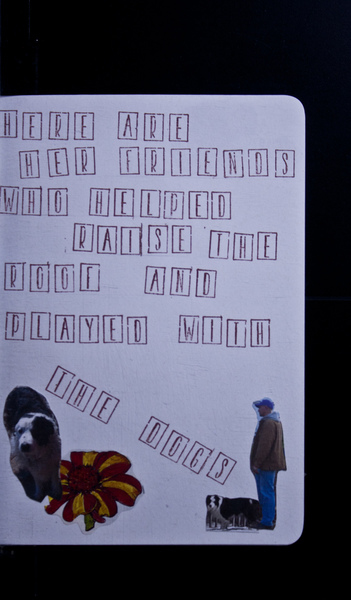 HERE ARE
HER FRIENDS
WHO HELPED
RAISE THE
ROOF AND
PLAYED WITH
THE DOGS